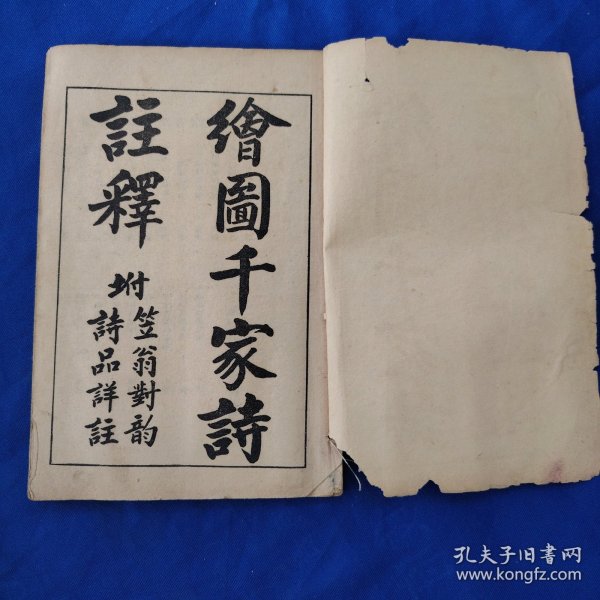 繪圖千家詩
註釋
坿
笠翁對韵
詩品詳註
孔夫子旧書网
www.kongfz.com